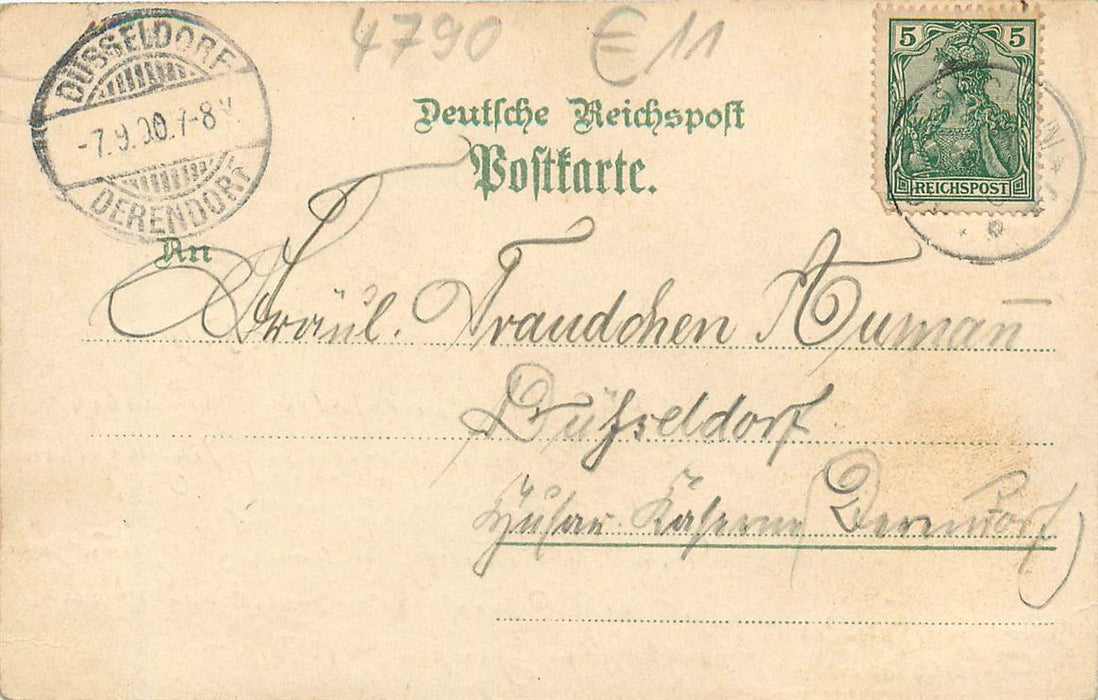 4790 €11
DÜSSELDORF
-7.9.00.7-8V.
DERENDORF
5 5
REICHSPOST
Deutsche Reichspost
Postkarte.
An
Fräul. Traudchen Numan
Düsseldorf
Husar. Kaserne (Derendorf)